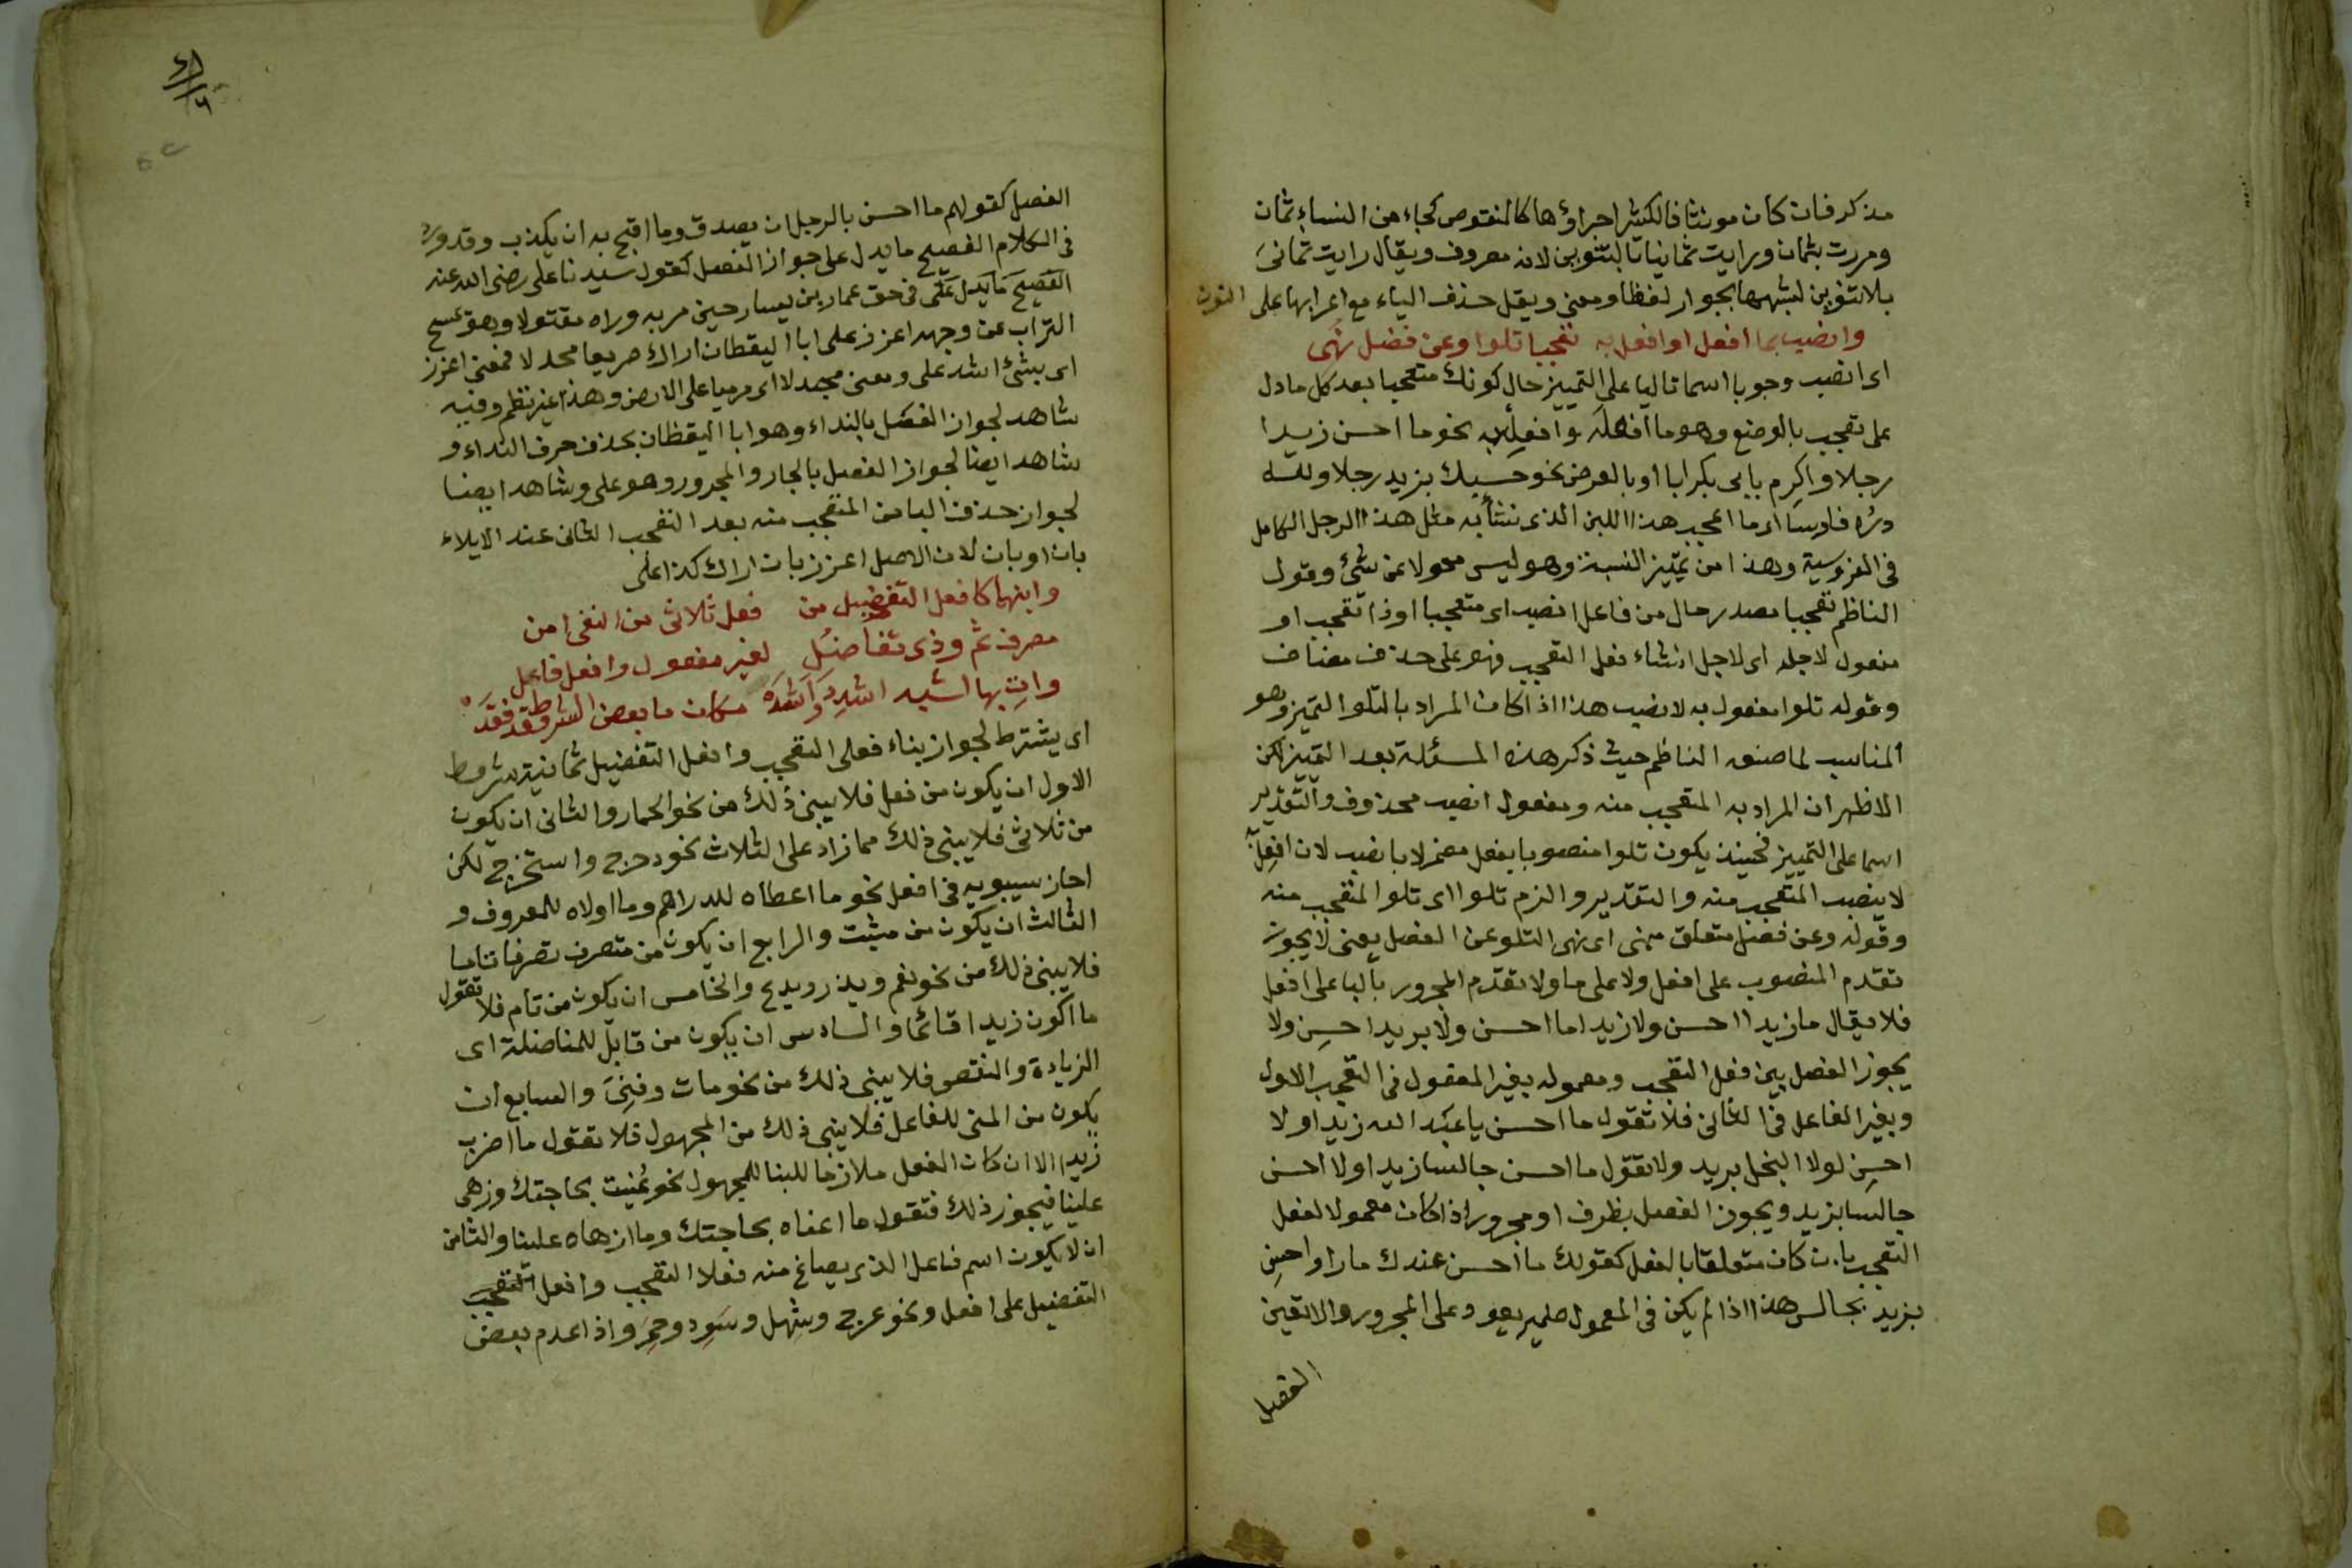 مذكر فان كان مونثا فالكثير اجراؤها كالمنقوص كجاء من النساء ثمان
ومررت بثمان ورايت ثمانيا بالتنوين لانه مصروف ويقال رايت ثمانى
بلا تنوين لشبهها بجوار لفظا ومعنى ويقل حذف الياء مع اعرابها على النون
وانصب بما افعل او افعل به تعجبا تلوا وعن فصل نهى
اى انصب وجوبا اسما تاليا على التمييز حال كونك متعجبا بعد كل ما دل
على تعجب بالوضع وهو ما افعله وافعل به نحو ما احسن زيدا
رجلا واكرم بابى بكر ابا او بالعرض نحو حسبك بزيد رجلا ولله
دره فارسا اى ما اعجب هذا اللبن الذى نشأ به مثل هذا الرجل الكامل
فى الفروسية وهذا من تمييز النسبة وهو ليس محولا عن شئ وقول
الناظم تعجبا مصدر حال من فاعل انصب اى متعجبا او ذا تعجب او
مفعول لاجله اى لاجل انشاء فعل التعجب فهو على حذف مضاف
وقوله تلوا مفعول به لانصب هذا اذا كان المراد بالتلو التمييز وهو
المناسب لما صنعه الناظم حيث ذكر هذه المسئلة بعد التمييز لكن
الاظهر ان المراد به المتعجب منه ومفعول انصب محذوف والتقدير
اسما على التمييز فحينئذ يكون تلوا منصوبا بفعل مضمر لا بانصب لان افعل به
لا ينصب المتعجب منه والتقدير والزم تلوا اى تلوا المتعجب منه
وقوله وعن فصل متعلق بنهى اى نهى التلو عن الفصل يعنى لا يجوز
تقدم المنصوب على افعل ولا على ما ولا تقدم المجرور بالبا على افعل
فلا يقال ما زيدا احسن ولا زيدا ما احسن ولا بزيد احسن ولا
يجوز الفصل بين فعل التعجب ومعموله بغير المفعول فى التعجب الاول
وبغير الفاعل فى الثانى فلا تقول ما احسن يا عبد الله زيدا ولا
احسن لولا البخل بزيد ولا تقول ما احسن جالسا زيدا ولا احسن
جالسا بزيد ويجوز الفصل بظرف او مجرور اذا كان معمولا لفعل
التعجب بان كان متعلقا بالفعل كقولك ما احسن عندك مارا واحسن
بزيد بجالس هذا اذا لم يكن فى المعمول ضمير يعود على المجرور والا تعين
الفصل
الفصل كقولهم ما احسن بالرجل ان يصدق وما اقبح به ان يكذب وقد ورد
فى الكلام الفصيح ما يدل على جواز الفصل كقول سيدنا على رضى الله عنه
الفصيح ما يدل على فى حق عمار بن يسار حين مر به وراه مقتولا وهو يمسح
التراب عن وجهه اعزز على ابا اليقظان اراك صريعا مجدلا فمعنى اعزز
اى بشئ اشد على ومعنى مجدلا اى مرميا على الارض وهذا غير نظم وفيه
شاهد لجواز الفصل بالنداء وهو ابا اليقظان بحذف حرف النداء و
شاهد ايضا لجواز الفصل بالجار والمجرور وهو على وشاهد ايضا
لجواز حذف البا من المتعجب منه بعد التعجب الثانى عند الايلاء
بان او بان لان الاصل اعزز بان اراك كذا على
وابنهما كافعل التفضيل من فعل ثلاثى من النفى امن
مصرف تم وذى تفاضل لغير مفعول وافعل فاعل
وات بها لشبه اشدد واشد مكان ما بعض الشروط قد فقد
اى يشترط لجواز بناء فعلى التعجب وافعل التفضيل ثمانية شروط
الاول ان يكون من فعل فلا يبنى ذلك من نحو الحمار والثانى ان يكون
من ثلاثى فلا يبنى ذلك مما زاد على الثلاث نحو دحرج واستخرج لكن
اجاز سيبويه فى افعل نحو ما اعطاه للدراهم وما اولاه للمعروف و
الثالث ان يكون من مثبت والرابع ان يكون من متصرف تصرفا تاما
فلا يبنى ذلك من نحو نعم ويذر ويدع والخامس ان يكون من تام فلا تقول
ما اكون زيدا قائما والسادس ان يكون من قابل للمفاضلة اى
الزيادة والنقص فلا يبنى ذلك من نحو مات وفنى والسابع ان
يكون من المبنى للفاعل فلا يبنى ذلك من المجهول فلا تقول ما اضرب
زيدا الا ان كان الفعل ملازما للبنا للمجهول نحو عنيت بحاجتك وزهى
علينا فيجوز ذلك فتقول ما اعناه بحاجتك وما ازهاه علينا والثامن
ان لا يكون اسم فاعل الذى يصاغ منه فعلا التعجب وافعل التعجب
التفضيل على افعل ونحو عرج وشهل وسود وحمر واذا عدم بعض